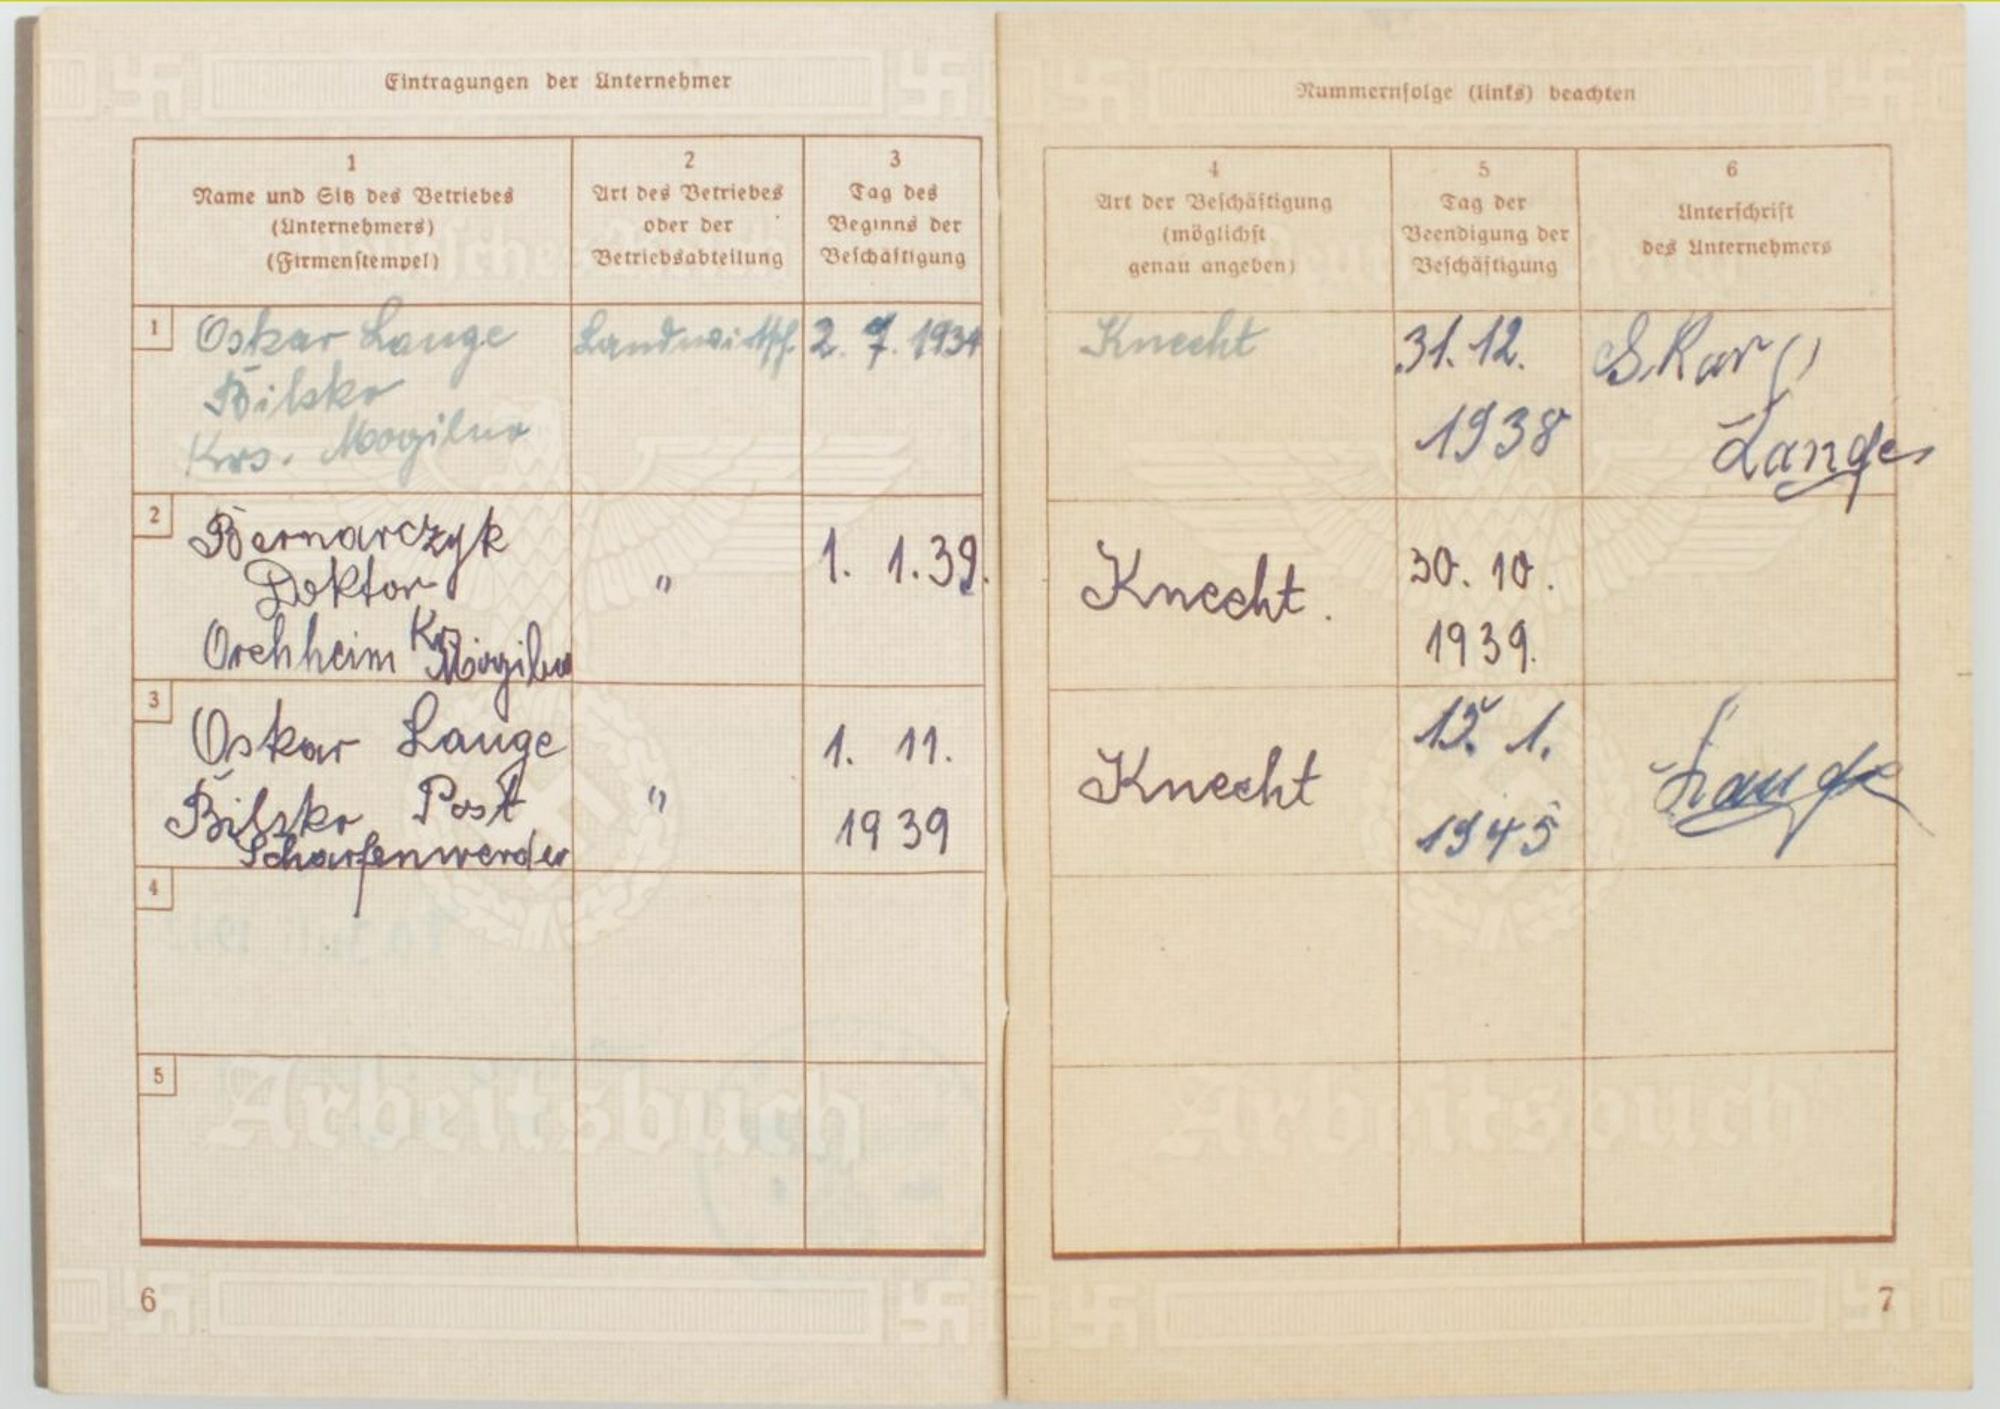 Eintragungen der Unternehmer
1
Name und Sitz des Betriebes
(Unternehmers)
(Firmenstempel)
2
Art des Betriebes
oder der
Betriebsabteilung
3
Tag des
Beginns der
Beschäftigung
1
Oskar Lange
Bilsko
Krs. Mogilno
Landwirtsch.
2. 7. 1934
2
Bernarczyk
Doktor
Orchheim Kr. Mogilno
"
1. 1. 39.
3
Oskar Lange
Bilsko Post
Scharfenwerder
"
1. 11.
1939
4
5
Arbeitsbuch
6
Nummernfolge (links) beachten
4
Art der Beschäftigung
(möglichst
genau angeben)
5
Tag der
Beendigung der
Beschäftigung
6
Unterschrift
des Unternehmers
Knecht
31. 12.
1938
Lange
Knecht.
30. 10.
1939.
Knecht
15. 1.
1945
Lange
Arbeitsbuch
7